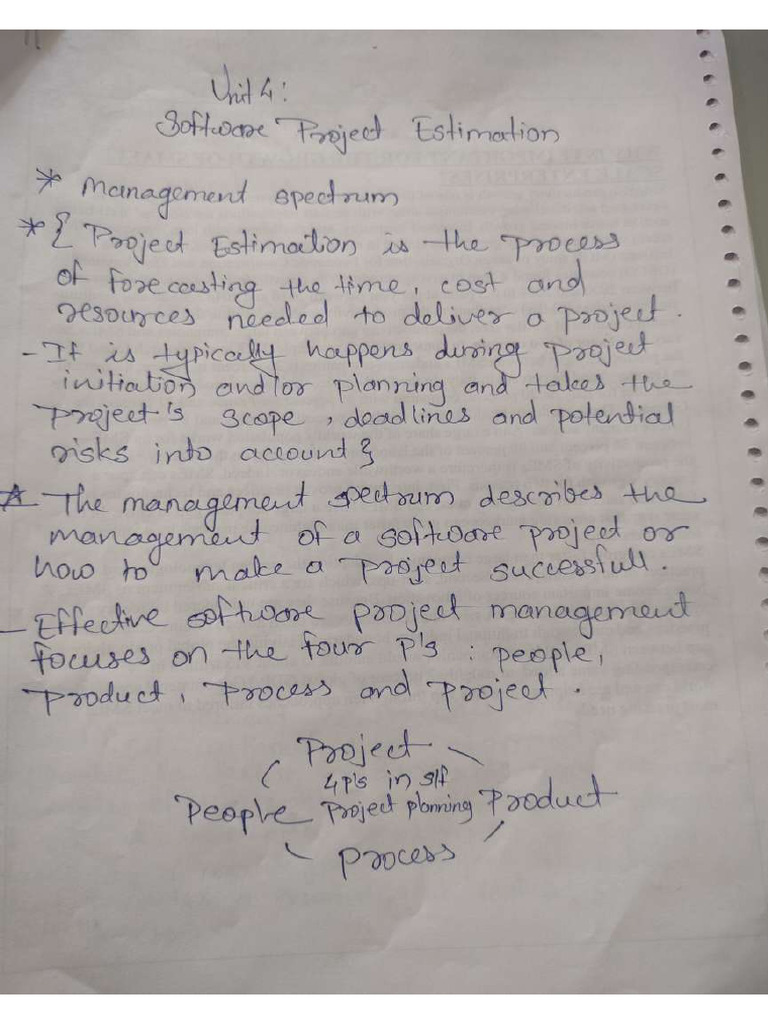 Unit 4:
Software Project Estimation
* Management spectrum
* { Project Estimation is the process
of forecasting the time, cost and
resources needed to deliver a project.
- It is typically happens during project
initiation and/or planning and takes the
project's scope, deadlines and potential
risks into account }
* The management spectrum describes the
management of a software project or
how to make a project successfull.
- Effective software project management
focuses on the four P's : people,
product, process and project.
Project
4P's in s/f
People Project planning Product
process